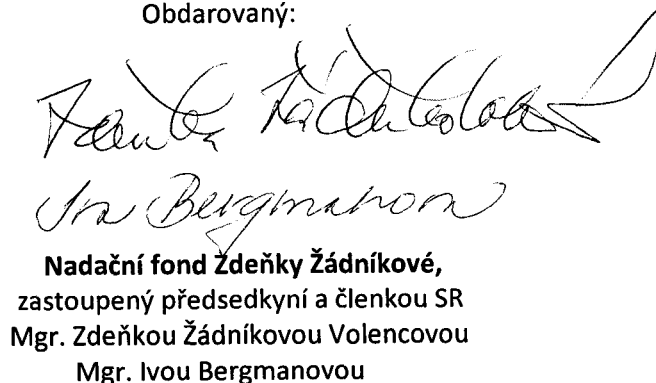 Obdarovaný:
Zdeňka Žádníková
Iva Bergmanová
Nadační fond Zdeňky Žádníkové,
zastoupený předsedkyní a členkou SR
Mgr. Zdeňkou Žádníkovou Volencovou
Mgr. Ivou Bergmanovou